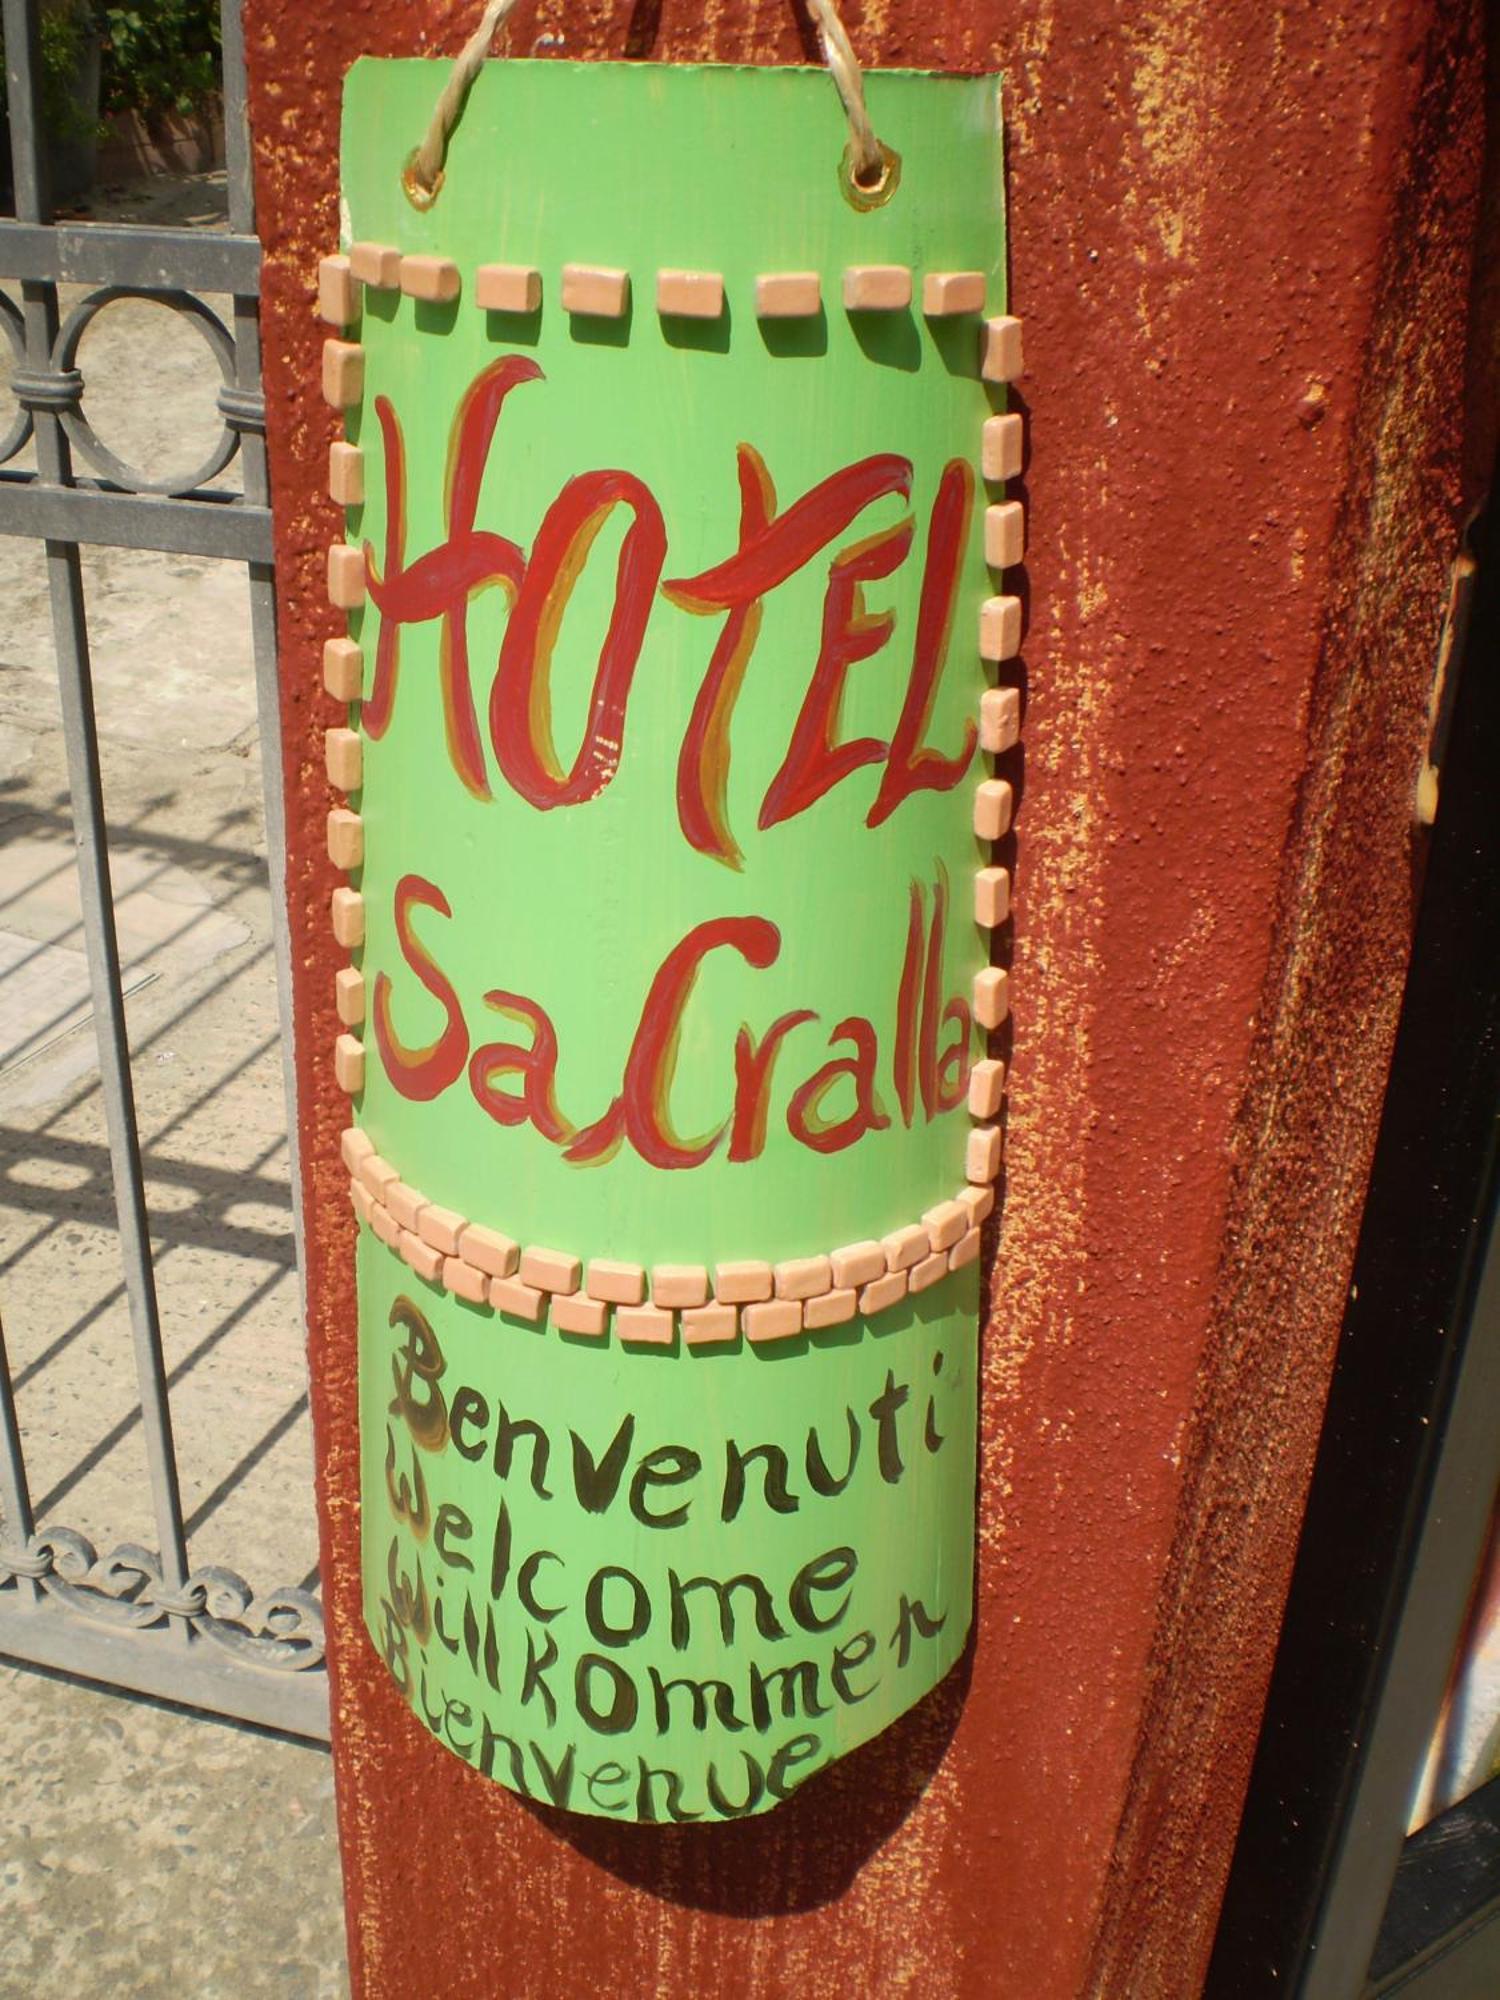 HOTEL
SaCralla
Benvenuti
Welcome
Willkommen
Bienvenue